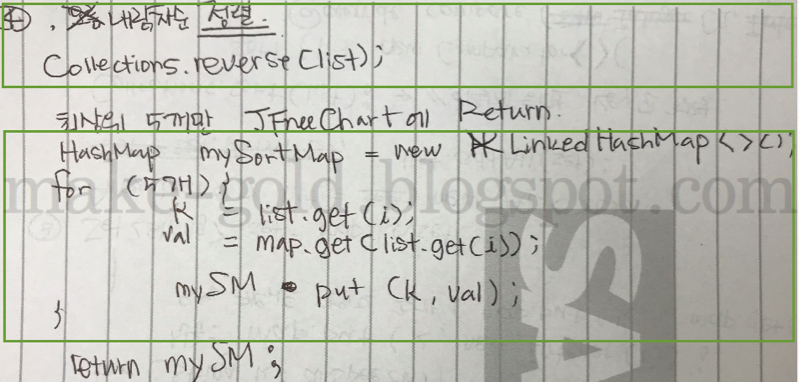 ④. 내림차순 정렬.
Collections.reverse(list);
최상위 5개만 JFreeChart에 Return.
HashMap mySortMap = new LinkedHashMap<>();
for (5개) {
k = list.get(i);
val = map.get(list.get(i));
mySM . put (k, val);
}
return mySM;
maker-gold.blogspot.com
SA